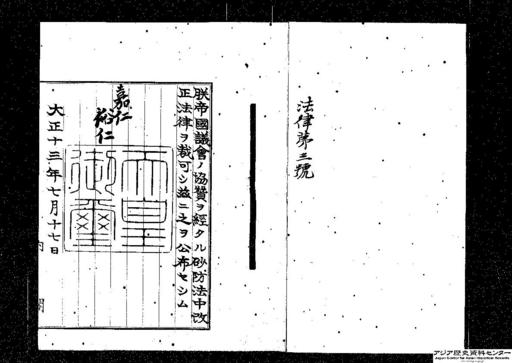 法律第三號
朕帝國議會ノ協贊ヲ經タル砂防法中改
正法律ヲ裁可シ茲ニ之ヲ公布セシム
嘉仁
裕仁
天皇
御璽
大正十三年七月十七日
内閣
アジア歴史資料センター
Japan Center for Asian Historical Records